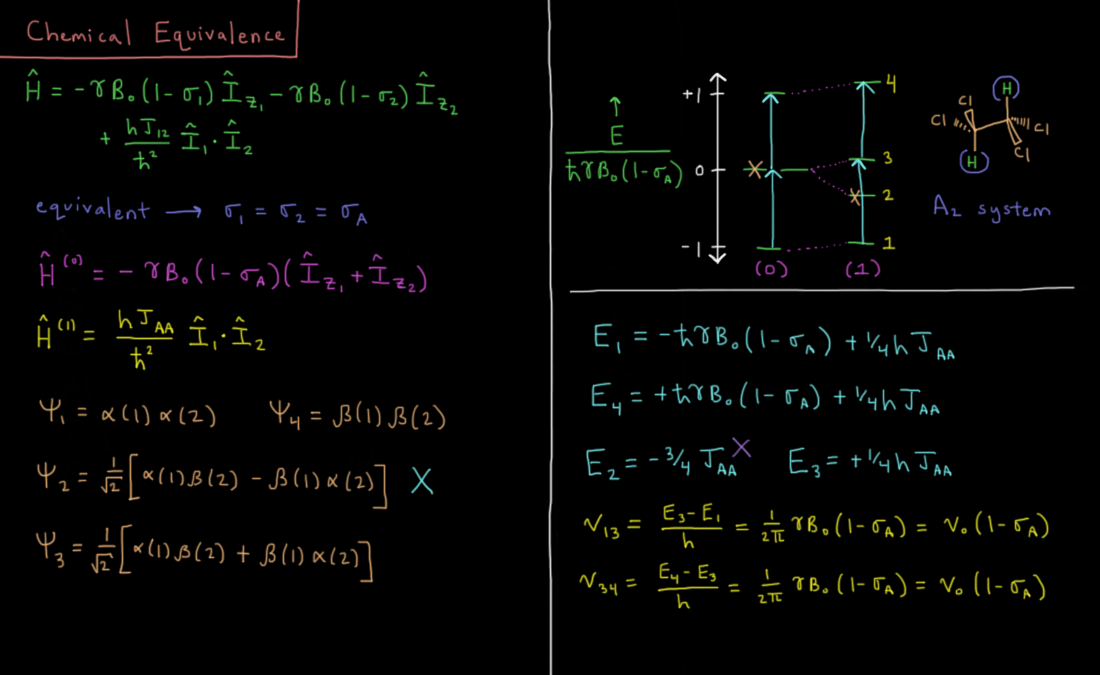 Chemical Equivalence
Ĥ = -γB₀(1-σ₁)Î_z₁ - γB₀(1-σ₂)Î_z₂
+ hJ₁₂/ħ² Î₁·Î₂
equivalent → σ₁ = σ₂ = σ_A
Ĥ⁽⁰⁾ = -γB₀(1-σ_A)(Î_z₁ + Î_z₂)
Ĥ⁽¹⁾ = hJ_AA/ħ² Î₁·Î₂
Ψ₁ = α(1)α(2) Ψ₄ = β(1)β(2)
Ψ₂ = 1/√2 [α(1)β(2) - β(1)α(2)] X
Ψ₃ = 1/√2 [α(1)β(2) + β(1)α(2)]
↑
E/ħγB₀(1-σ_A)
+1
0
-1
X
X
4
3
2
1
(0) (1)
H
Cl
Cl
Cl
Cl
H
A₂ system
E₁ = -ħγB₀(1-σ_A) + ¼hJ_AA
E₄ = +ħγB₀(1-σ_A) + ¼hJ_AA
E₂ = -¾ J_AA X E₃ = +¼hJ_AA
ν₁₃ = E₃-E₁/h = 1/2π γB₀(1-σ_A) = ν₀(1-σ_A)
ν₃₄ = E₄-E₃/h = 1/2π γB₀(1-σ_A) = ν₀(1-σ_A)